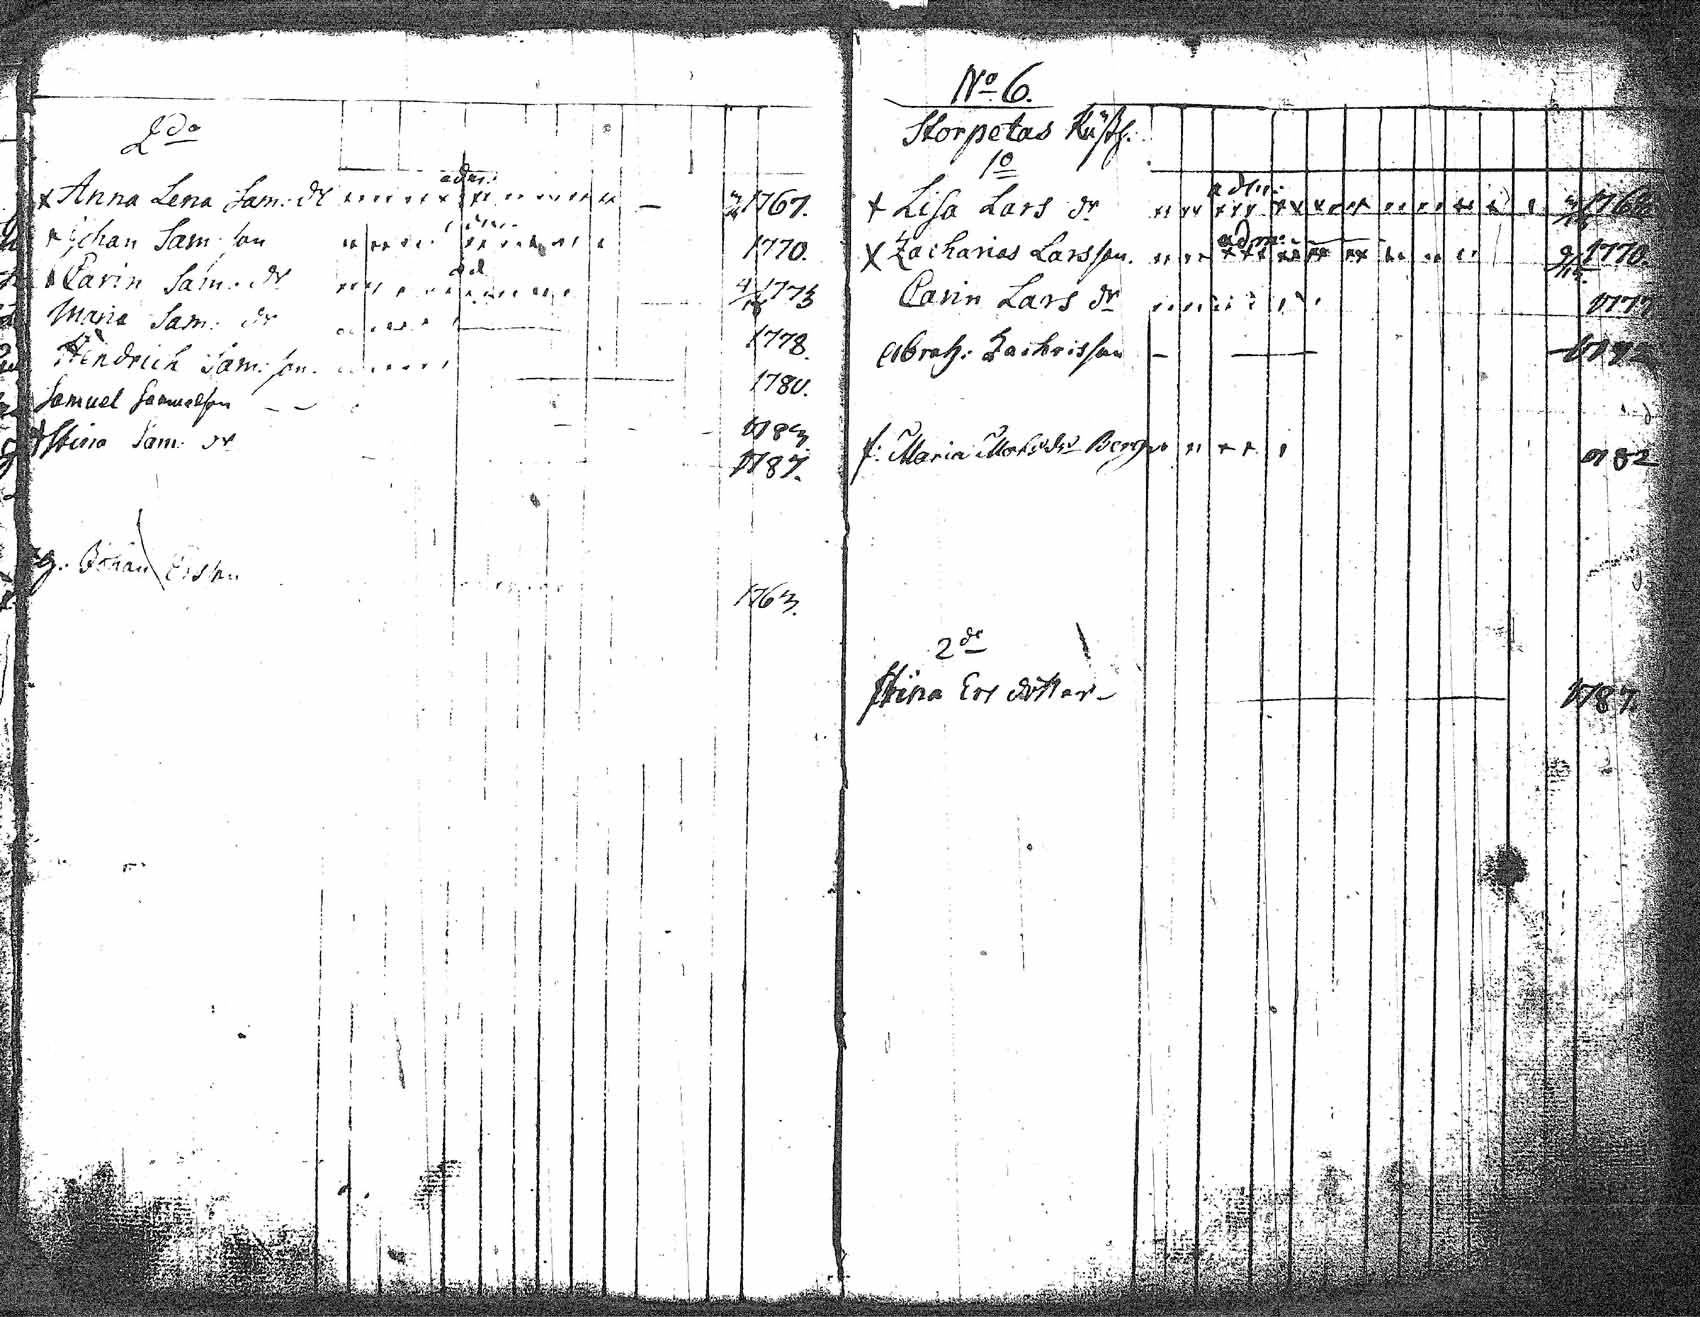 2do
adm:
Anna Lena Sam: dr 1767.
Johan Sam: son 1770.
ad
Carin Sam: dr 1773
Maria Sam: dr 1778
Hendrich Sam: son. 1780.
Samuel Samuelson 1783
Stina Sam: dr 1787.
g. Johan Ersson 1763.
No 6.
Storpetas
1o
adm:
Lisa Lars dr
adm:
Zacharias Larsson. 1770.
Carin Lars dr 1777
Abrah: Zachrisson
f: Maria Mats dr Berg 1782
2do
Stina Ers dotter 1787.